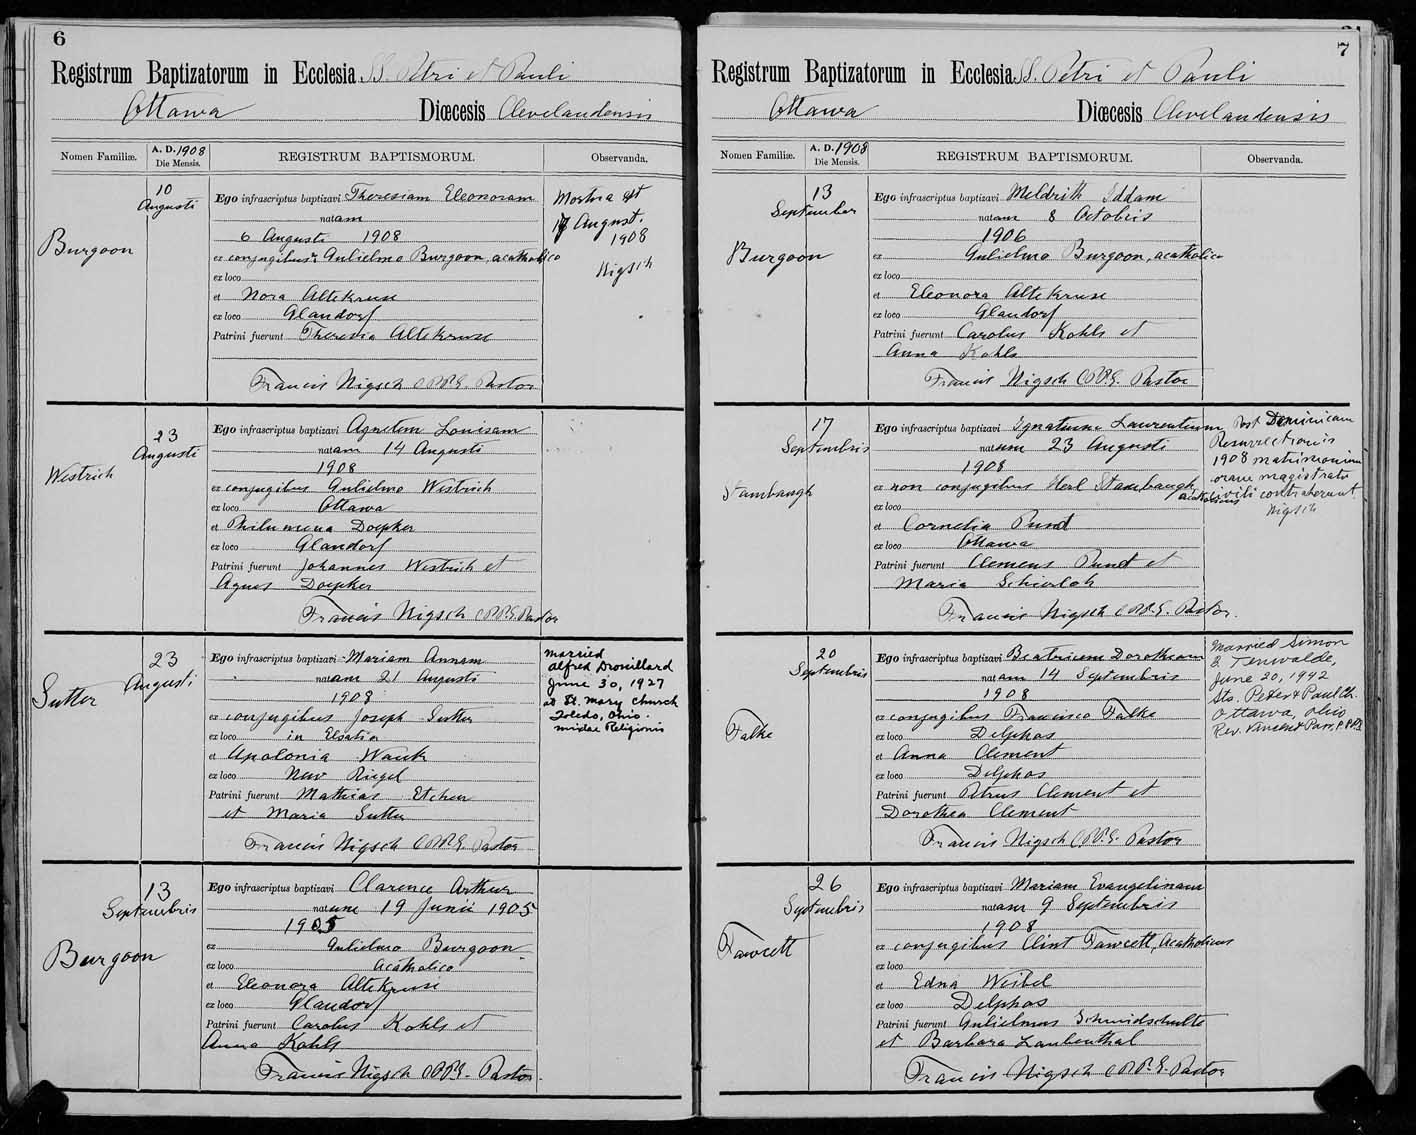 6
Registrum Baptizatorum in Ecclesia SS. Petri et Pauli
Ottawa Diœcesis Clevelandensis
Nomen Familiæ. A. D. 1908 Die Mensis. REGISTRUM BAPTISMORUM. Observanda.
Burgoon
10
Augusti
Ego infrascriptus baptizavi Theresiam Eleonoram
natam
6 Augusti 1908
ex conjugibus Gulielmo Burgoon, acatholico
ex loco
et Nora Altekruse
ex loco Glandorf
Patrini fuerunt Theresia Altekruse
Francis Nigsch C.PP.S. Pastor
Mortua est
August.
1908
Nigsch
Westrich
23
Augusti
Ego infrascriptus baptizavi Agnetem Louisam
natam 14 Augusti
1908
ex conjugibus Gulielmo Westrich
ex loco Ottawa
et Philumena Doepker
ex loco Glandorf
Patrini fuerunt Johannes Westrich et
Agnes Doepker
Francis Nigsch C.PP.S. Pastor
Sutter
23
Augusti
Ego infrascriptus baptizavi Mariam Annam
natam 21 Augusti
1908
ex conjugibus Joseph Sutter
ex loco in Elsatia
et Apolonia Wank
ex loco New Riegel
Patrini fuerunt Mathias Etchen
et Maria Sutter
Francis Nigsch C.PP.S. Pastor
Married
Alfred Drouillard
June 30, 1927
at St. Mary Church
Toledo, Ohio.
mixtae Religionis
Burgoon
13
Septembris
Ego infrascriptus baptizavi Clarence Arthur
natum 19 Junii 1905
1905
ex Gulielmo Burgoon
ex loco Acatholico
et Eleonora Altekruse
ex loco Glandorf
Patrini fuerunt Carolus Kohls et
Anna Kohls
Francis Nigsch C.PP.S. Pastor
7
Registrum Baptizatorum in Ecclesia SS. Petri et Pauli
Ottawa Diœcesis Clevelandensis
Nomen Familiæ. A. D. 1908 Die Mensis. REGISTRUM BAPTISMORUM. Observanda.
Burgoon
13
September
Ego infrascriptus baptizavi Meldrith Iddam
natam 8 Octobris
1906
ex Gulielmo Burgoon, acatholico
ex loco
et Eleonora Altekruse
ex loco Glandorf
Patrini fuerunt Carolus Kohls et
Anna Kohls
Francis Nigsch C.PP.S. Pastor
Stambaugh
17
Septembris
Ego infrascriptus baptizavi Ignatium Laurentium
natum 23 Augusti
1908
ex non conjugibus Herl Stambaugh
ex loco acatholicus
et Cornelia Pund
ex loco Ottawa
Patrini fuerunt Clemens Pund et
Maria Schierloh
Francis Nigsch C.PP.S. Pastor.
Post Dominicam
Resurrectionis
1908 matrimonium
coram magistratu
civili contraherunt.
Nigsch
Falke
20
Septembris
Ego infrascriptus baptizavi Beatricem Dorotheam
natam 14 Septembris
1908
ex conjugibus Francisco Falke
ex loco Delphos
et Anna Clement
ex loco Delphos
Patrini fuerunt Petrus Clement et
Dorothea Clement
Francis Nigsch C.PP.S. Pastor
Married Simon
B Tenwalde,
June 20, 1942
Sts. Peter & Paul Ch.
Ottawa, Ohio
Rev. Vincent
Fawcett
26
Septembris
Ego infrascriptus baptizavi Mariam Evangelinam
natam 9 Septembris
1908
ex conjugibus Clint Fawcett, Acatholicus
ex loco
et Edna Weibel
ex loco Delphos
Patrini fuerunt Gulielmus Schmidschulte
et Barbara Laubenthal
Francis Nigsch C.PP.S. Pastor